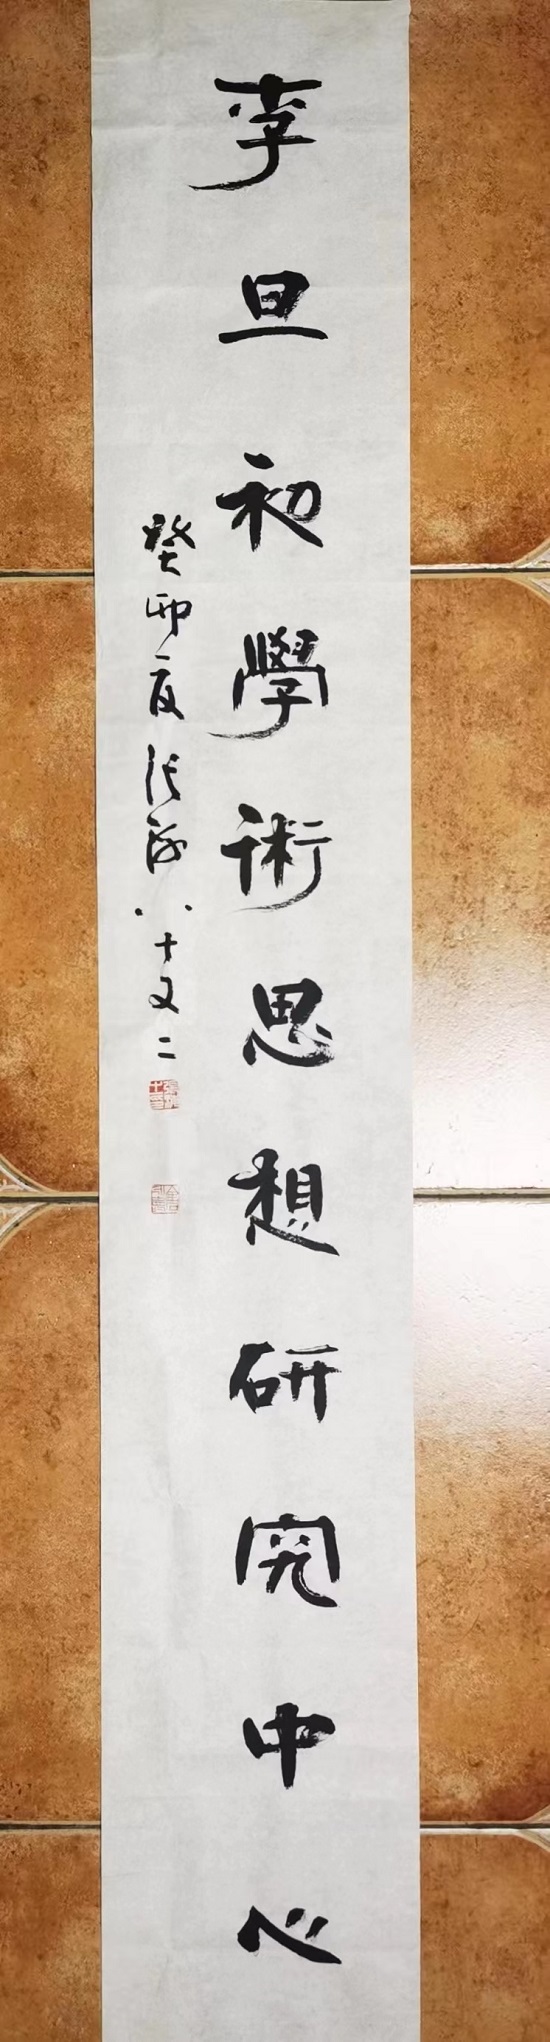 李旦初學術思想研究中心
癸卯夏 八十又二